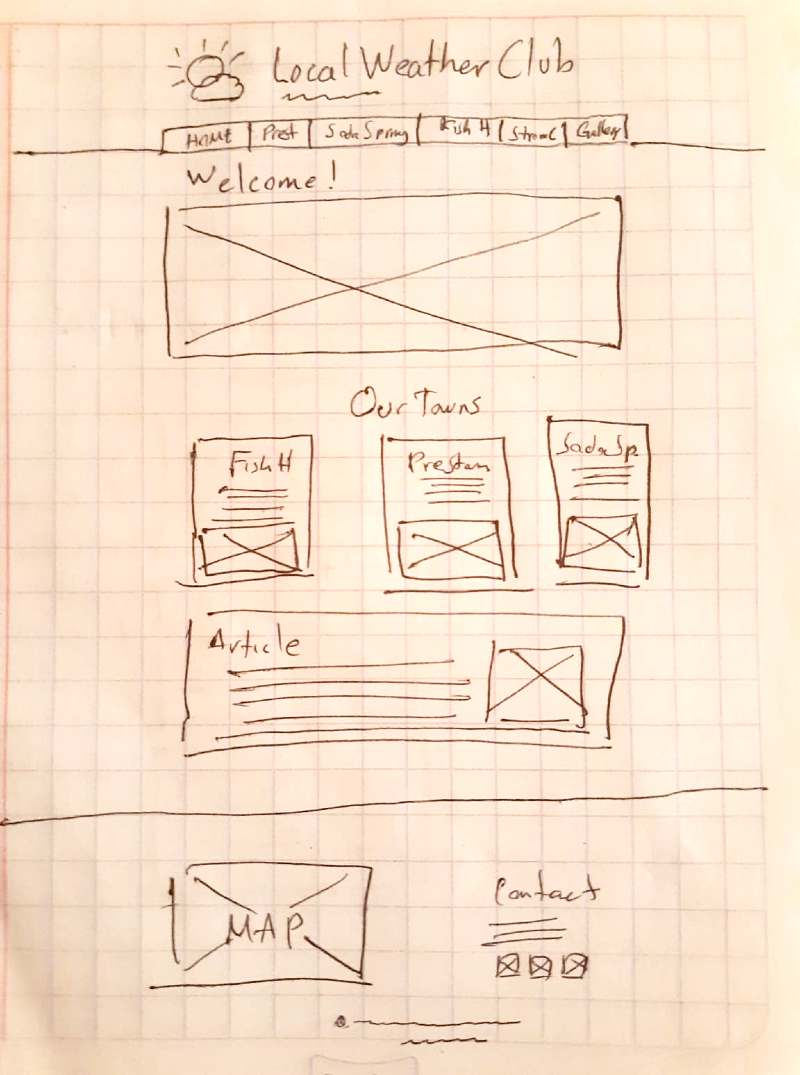 Local Weather Club
HOME Prest Soda Spring Fish H StromC Gallery
Welcome!
Our Towns
Fish H Preston Soda Sp.
Article
MAP
Contact